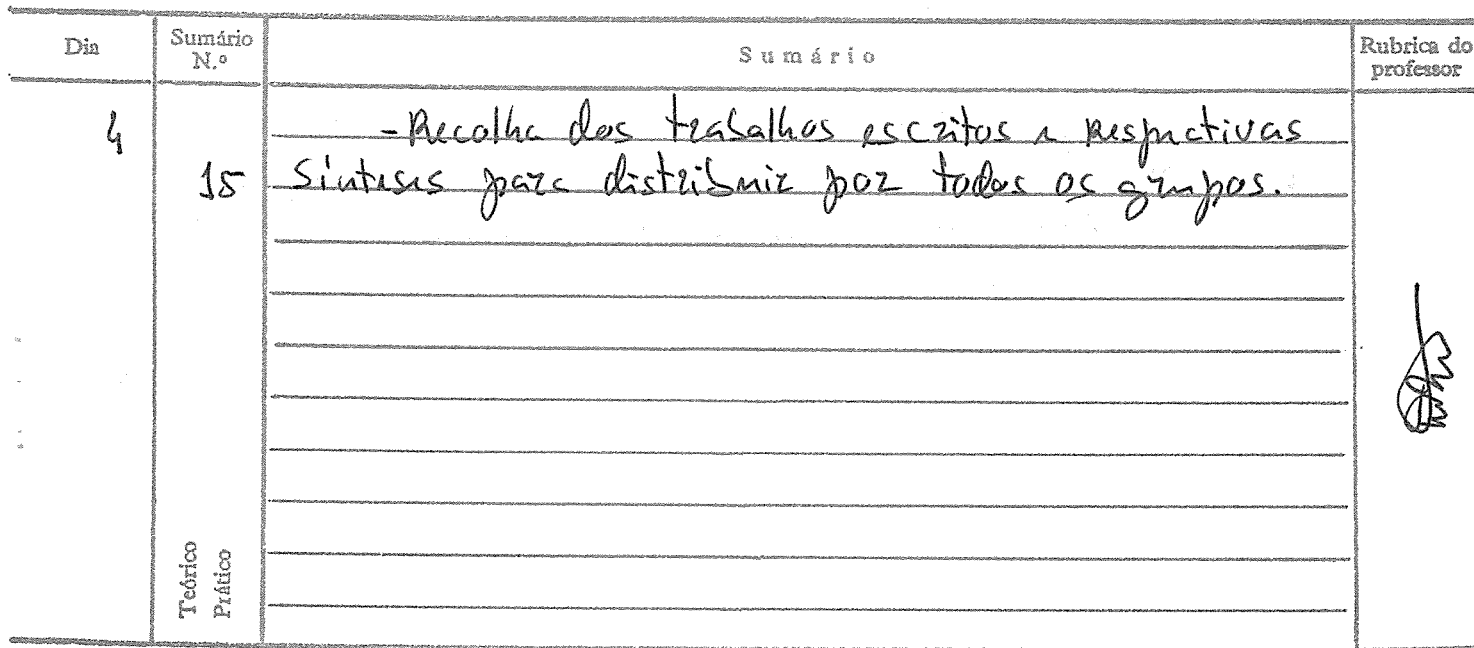 Dia
Sumário
N.º
Sumário
Rubrica do
professor
4
- Recolha dos trabalhos escritos e respectivas
15
Sínteses para distribuir por todos os grupos.
Teórico
Prático